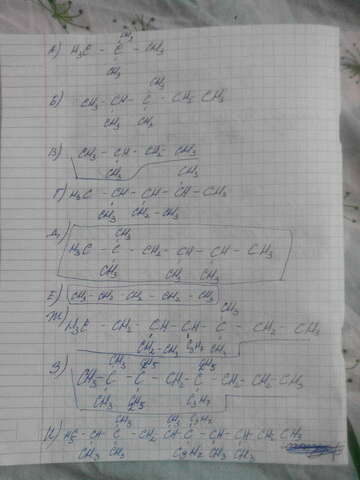 CH3
А) H3C - C - CH3
CH3
CH3
Б) CH3 - CH - C - CH2 CH3
CH3 CH3
В) CH3 - CH - CH2 - CH3
CH3 CH3
Г) H3C - CH - CH - CH - CH3
CH3 CH2 - CH3
Д) CH3
H3C - C - CH2 - CH - CH - CH3
CH3 CH3 CH3
Е) CH3 - CH2 - CH2 - CH2 - CH3
CH3
Ж) H3C - CH2 - CH - CH - C - CH2 - CH3
CH2 - CH3 C3H7 CH3
З) CH3 C2H5 C2H5
CH3 - C - C - CH2 - C - CH2 - CH2 - CH3
CH3 C2H5 C3H7
CH3 CH3 C3H7
И) H3C - CH - C - CH2 CH C - CH - CH CH2 CH3
CH3 CH3 C3H7 CH3 CH3